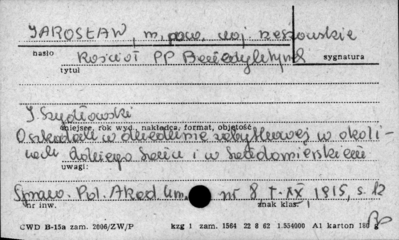 JAROSŁAW, m. pow. woj. rzeszowskie
hasło
sygnatura
Kościół PP Benedyktynek
tytuł
J. Szydłowski
O szkodach w dziedzinie zabytkowej w okoli-
miejsce, rok wyd., nakładca, format, objętość
cach dolnego Sanu i w Sandomierskiem
uwagi:
Spraw. Pol. Akad. Um. nr 8 t. XX 1915, s. 12
nr inw.
znak klas.
CWD B-15a zam. 2006/ZW/P kzg 1 zam. 1564 22 8 62 1.534900 A1 karton 180 g